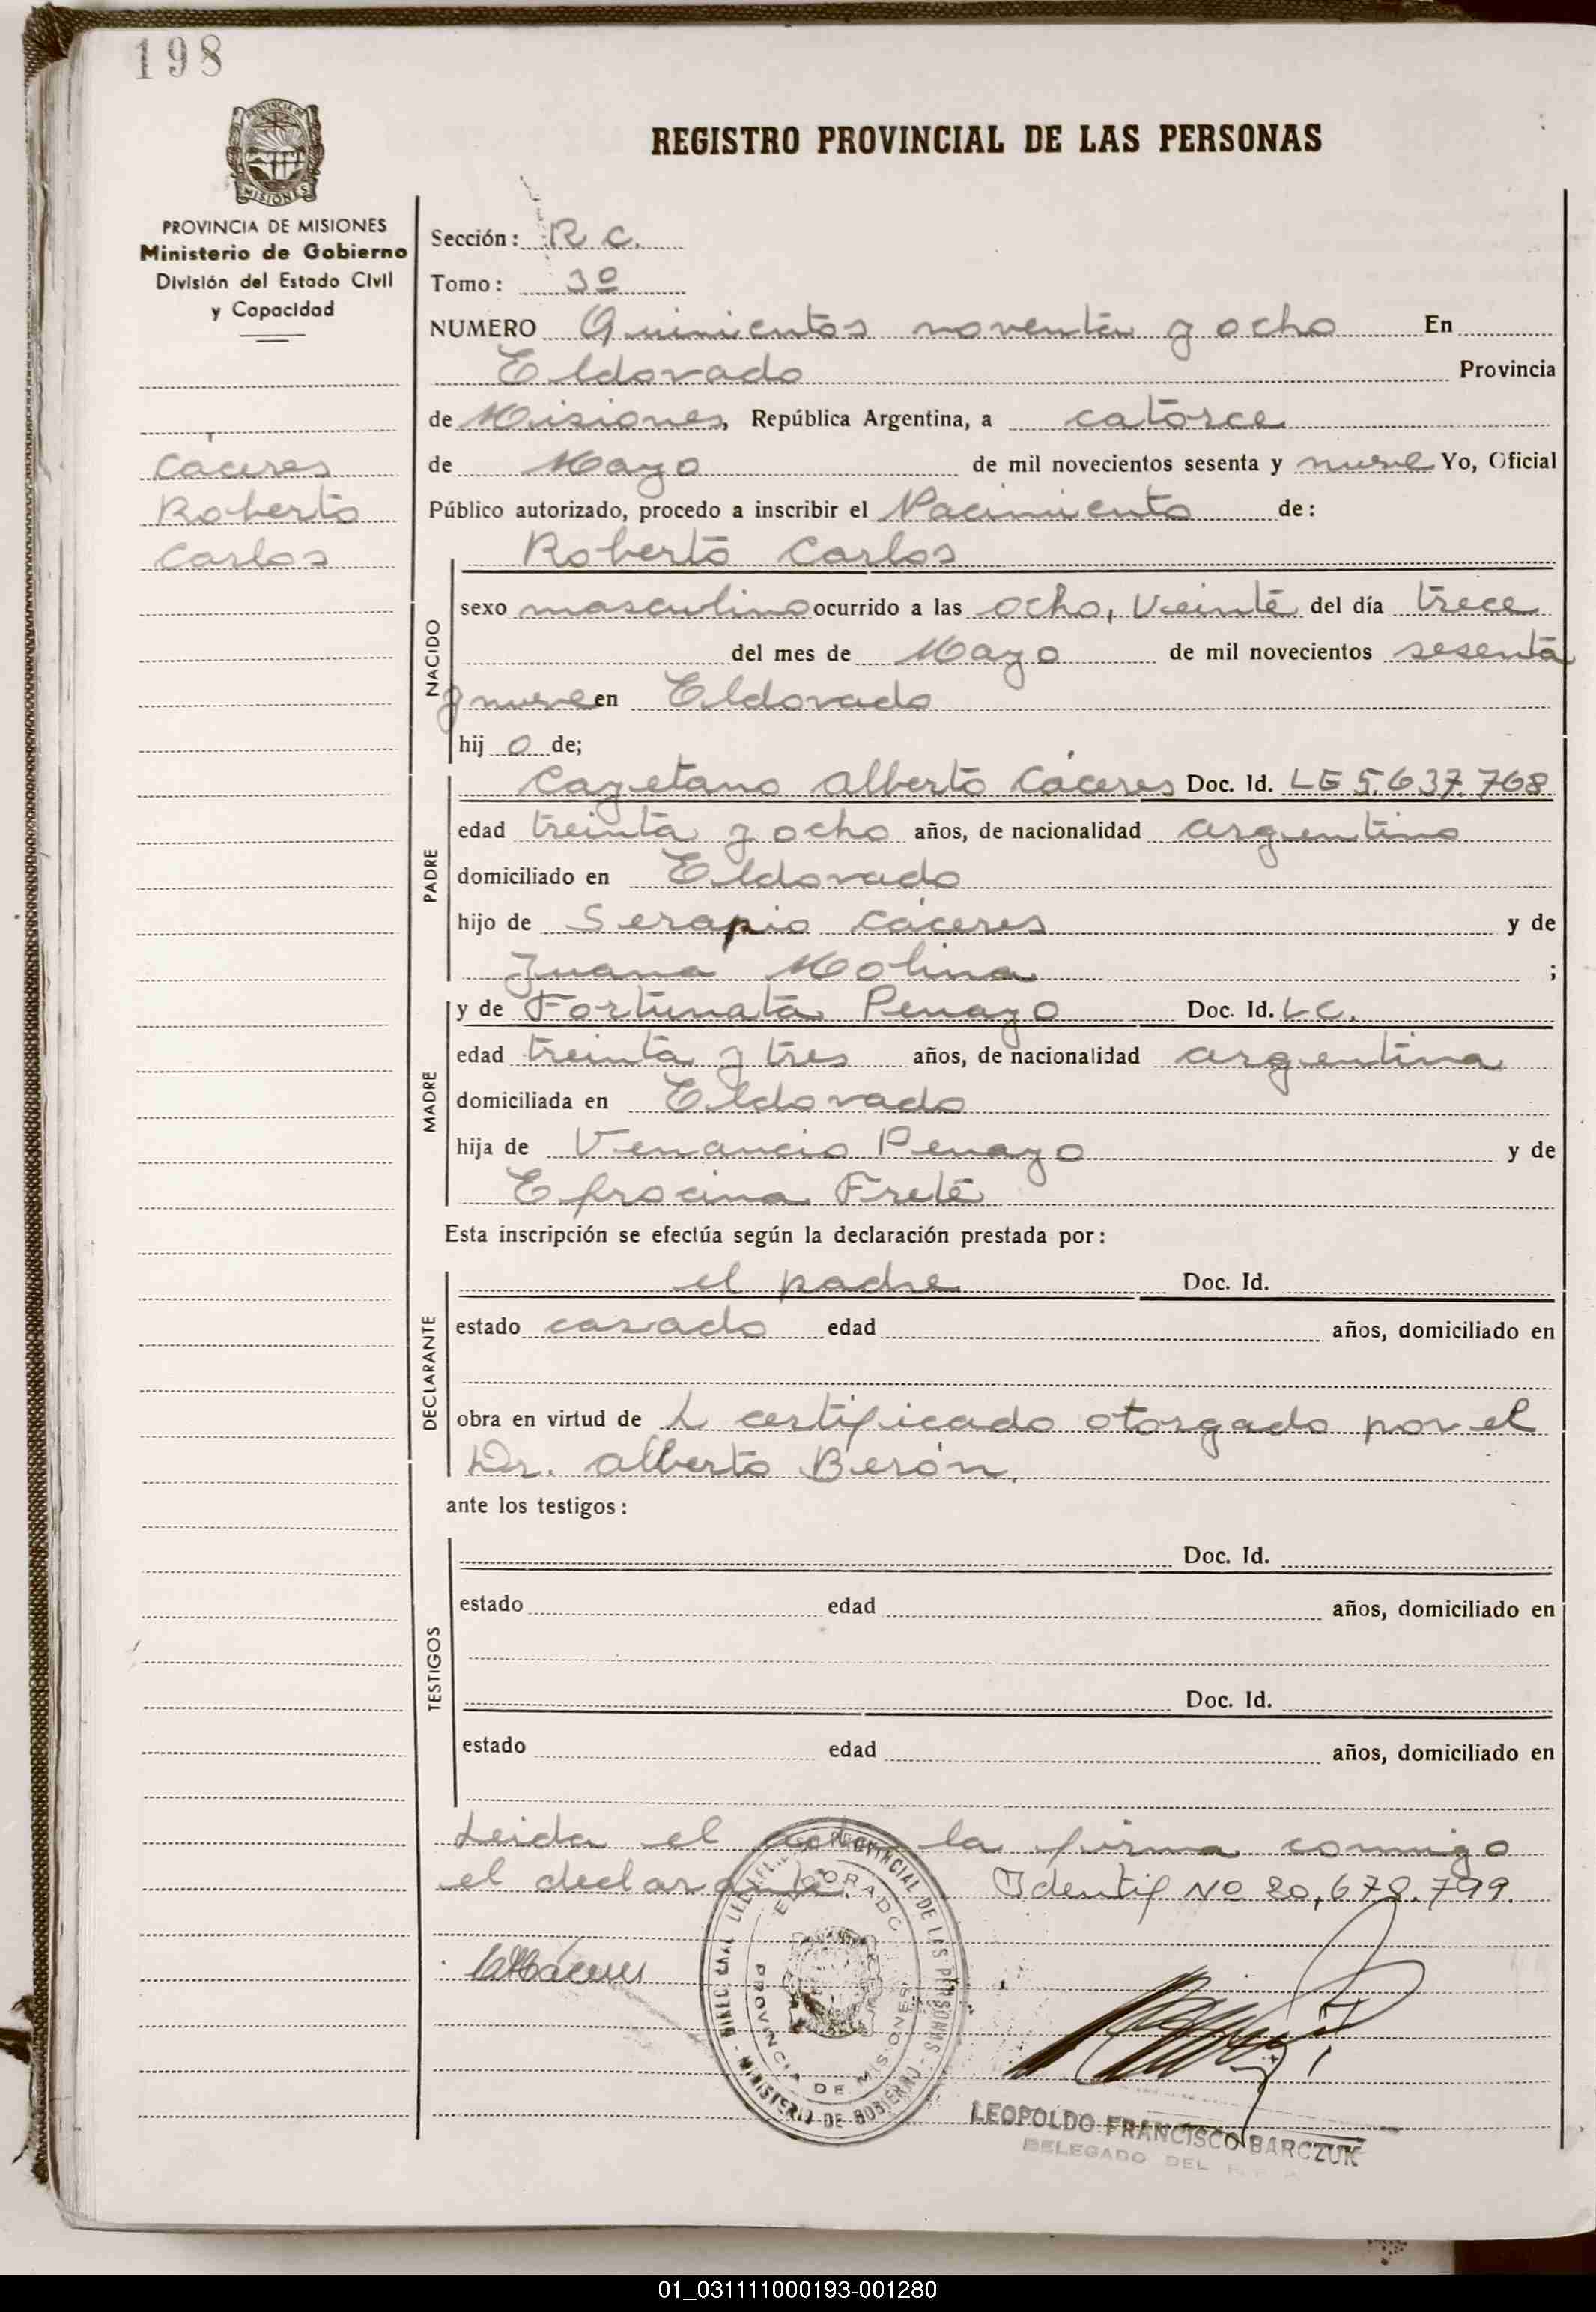 198
PROVINCIA DE
MISIONES
REGISTRO PROVINCIAL DE LAS PERSONAS
PROVINCIA DE MISIONES
Ministerio de Gobierno
División del Estado Civil
y Capacidad
Cáceres
Roberto
Carlos
Sección: R C.
Tomo: 3º
NUMERO Quinientos noventa y ocho En
Eldorado Provincia
de Misiones, República Argentina, a catorce
de Mayo de mil novecientos sesenta y nueve Yo, Oficial
Público autorizado, procedo a inscribir el Nacimiento de:
NACIDO
Roberto Carlos
sexo masculino ocurrido a las ocho, veinte del día trece
del mes de Mayo de mil novecientos sesenta
y nueve en Eldorado
hij o de;
PADRE
Cayetano Alberto Cáceres Doc. Id. LE 5.637.768
edad treinta y ocho años, de nacionalidad argentino
domiciliado en Eldorado
hijo de Serapio Cáceres y de
Juana Molina ;
MADRE
y de Fortunata Penayo Doc. Id. LC.
edad treinta y tres años, de nacionalidad argentina
domiciliada en Eldorado
hija de Venancio Penayo y de
Efrocina Frete
Esta inscripción se efectúa según la declaración prestada por:
DECLARANTE
el padre Doc. Id.
estado casado edad años, domiciliado en
obra en virtud de L certificado otorgado por el
Dr. Alberto Berón.
ante los testigos:
TESTIGOS
Doc. Id.
estado edad años, domiciliado en
Doc. Id.
estado edad años, domiciliado en
Leida el acta la firma conmigo
el declarante. Identif Nº 20,678.799.
PROVINCIAL DE LAS PERSONAS
ELDORADO
PROVINCIA DE MISIONES
MINISTERIO DE GOBIERNO
LEOPOLDO FRANCISCO BARCZUK
DELEGADO DEL
01_031111000193-001280